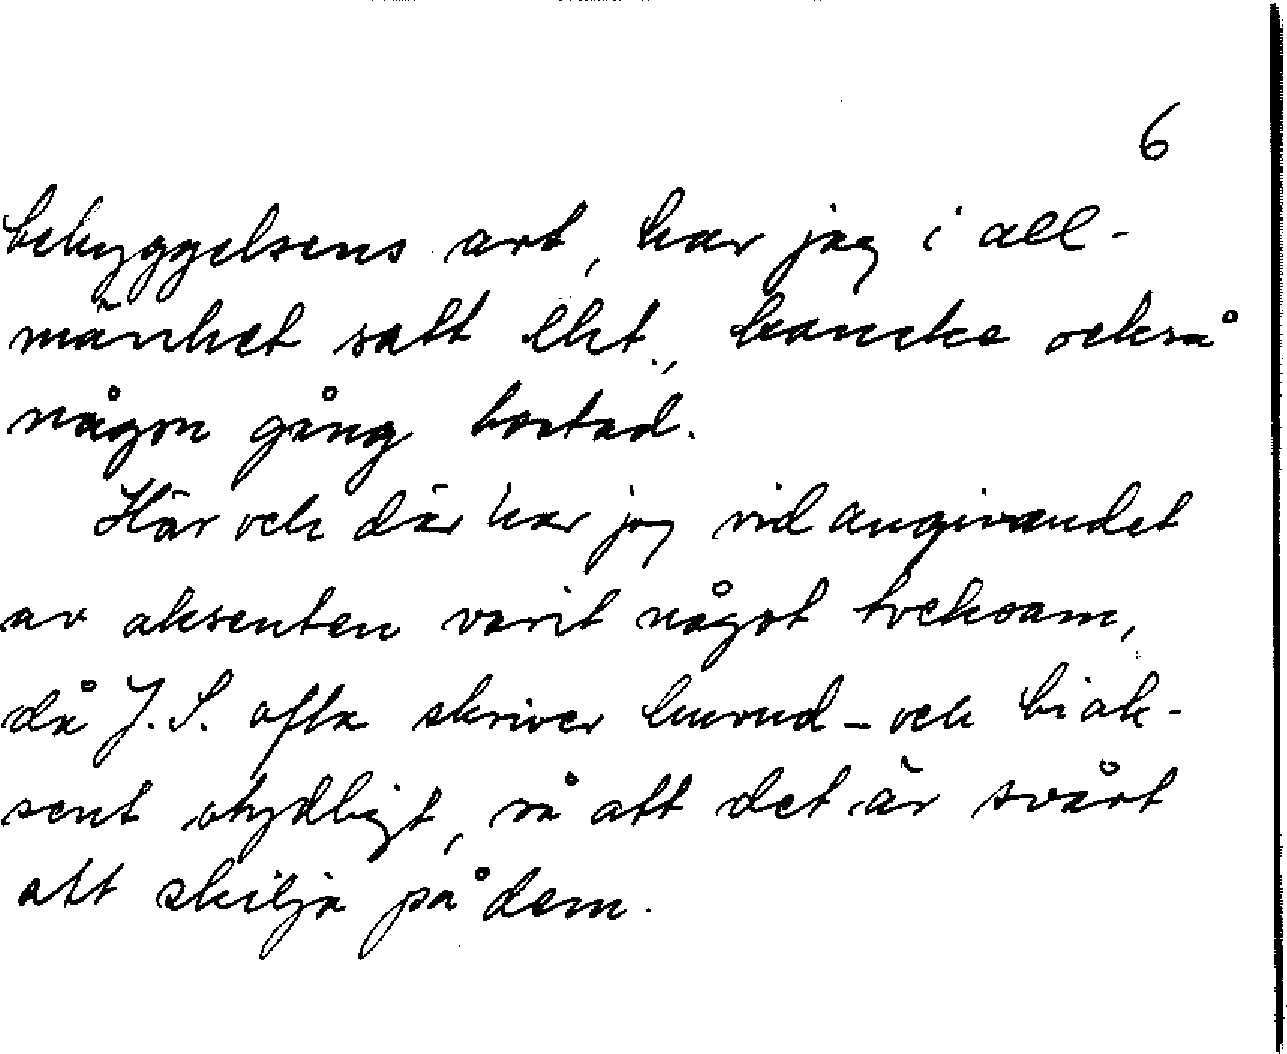 6
bebyggelsens art, har jag i all-
mänhet satt lht., kanske också
någon gång bostad.
Här och där har jag vid angivandet
av aksenten varit något tveksam,
då J. S. ofta skriver huvud- och biak-
sent otydligt, så att det är svårt
att skilja på dem.